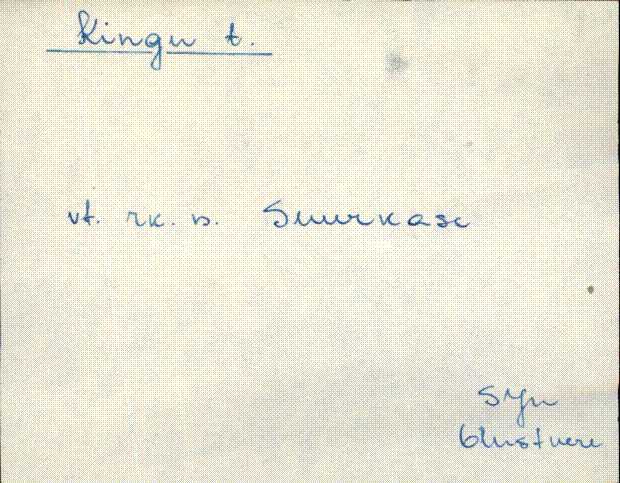 Kingu t.
vt. rk. n. Suurkase
SJn
Olustvere